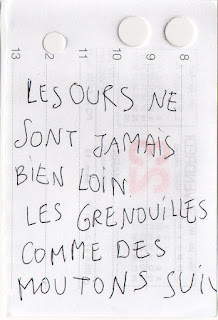 13 12 11 10 9 8
LES OURS NE
SONT JAMAIS
BIEN LOIN.
LES GRENOUILLES
COMME DES
MOUTONS SUIV